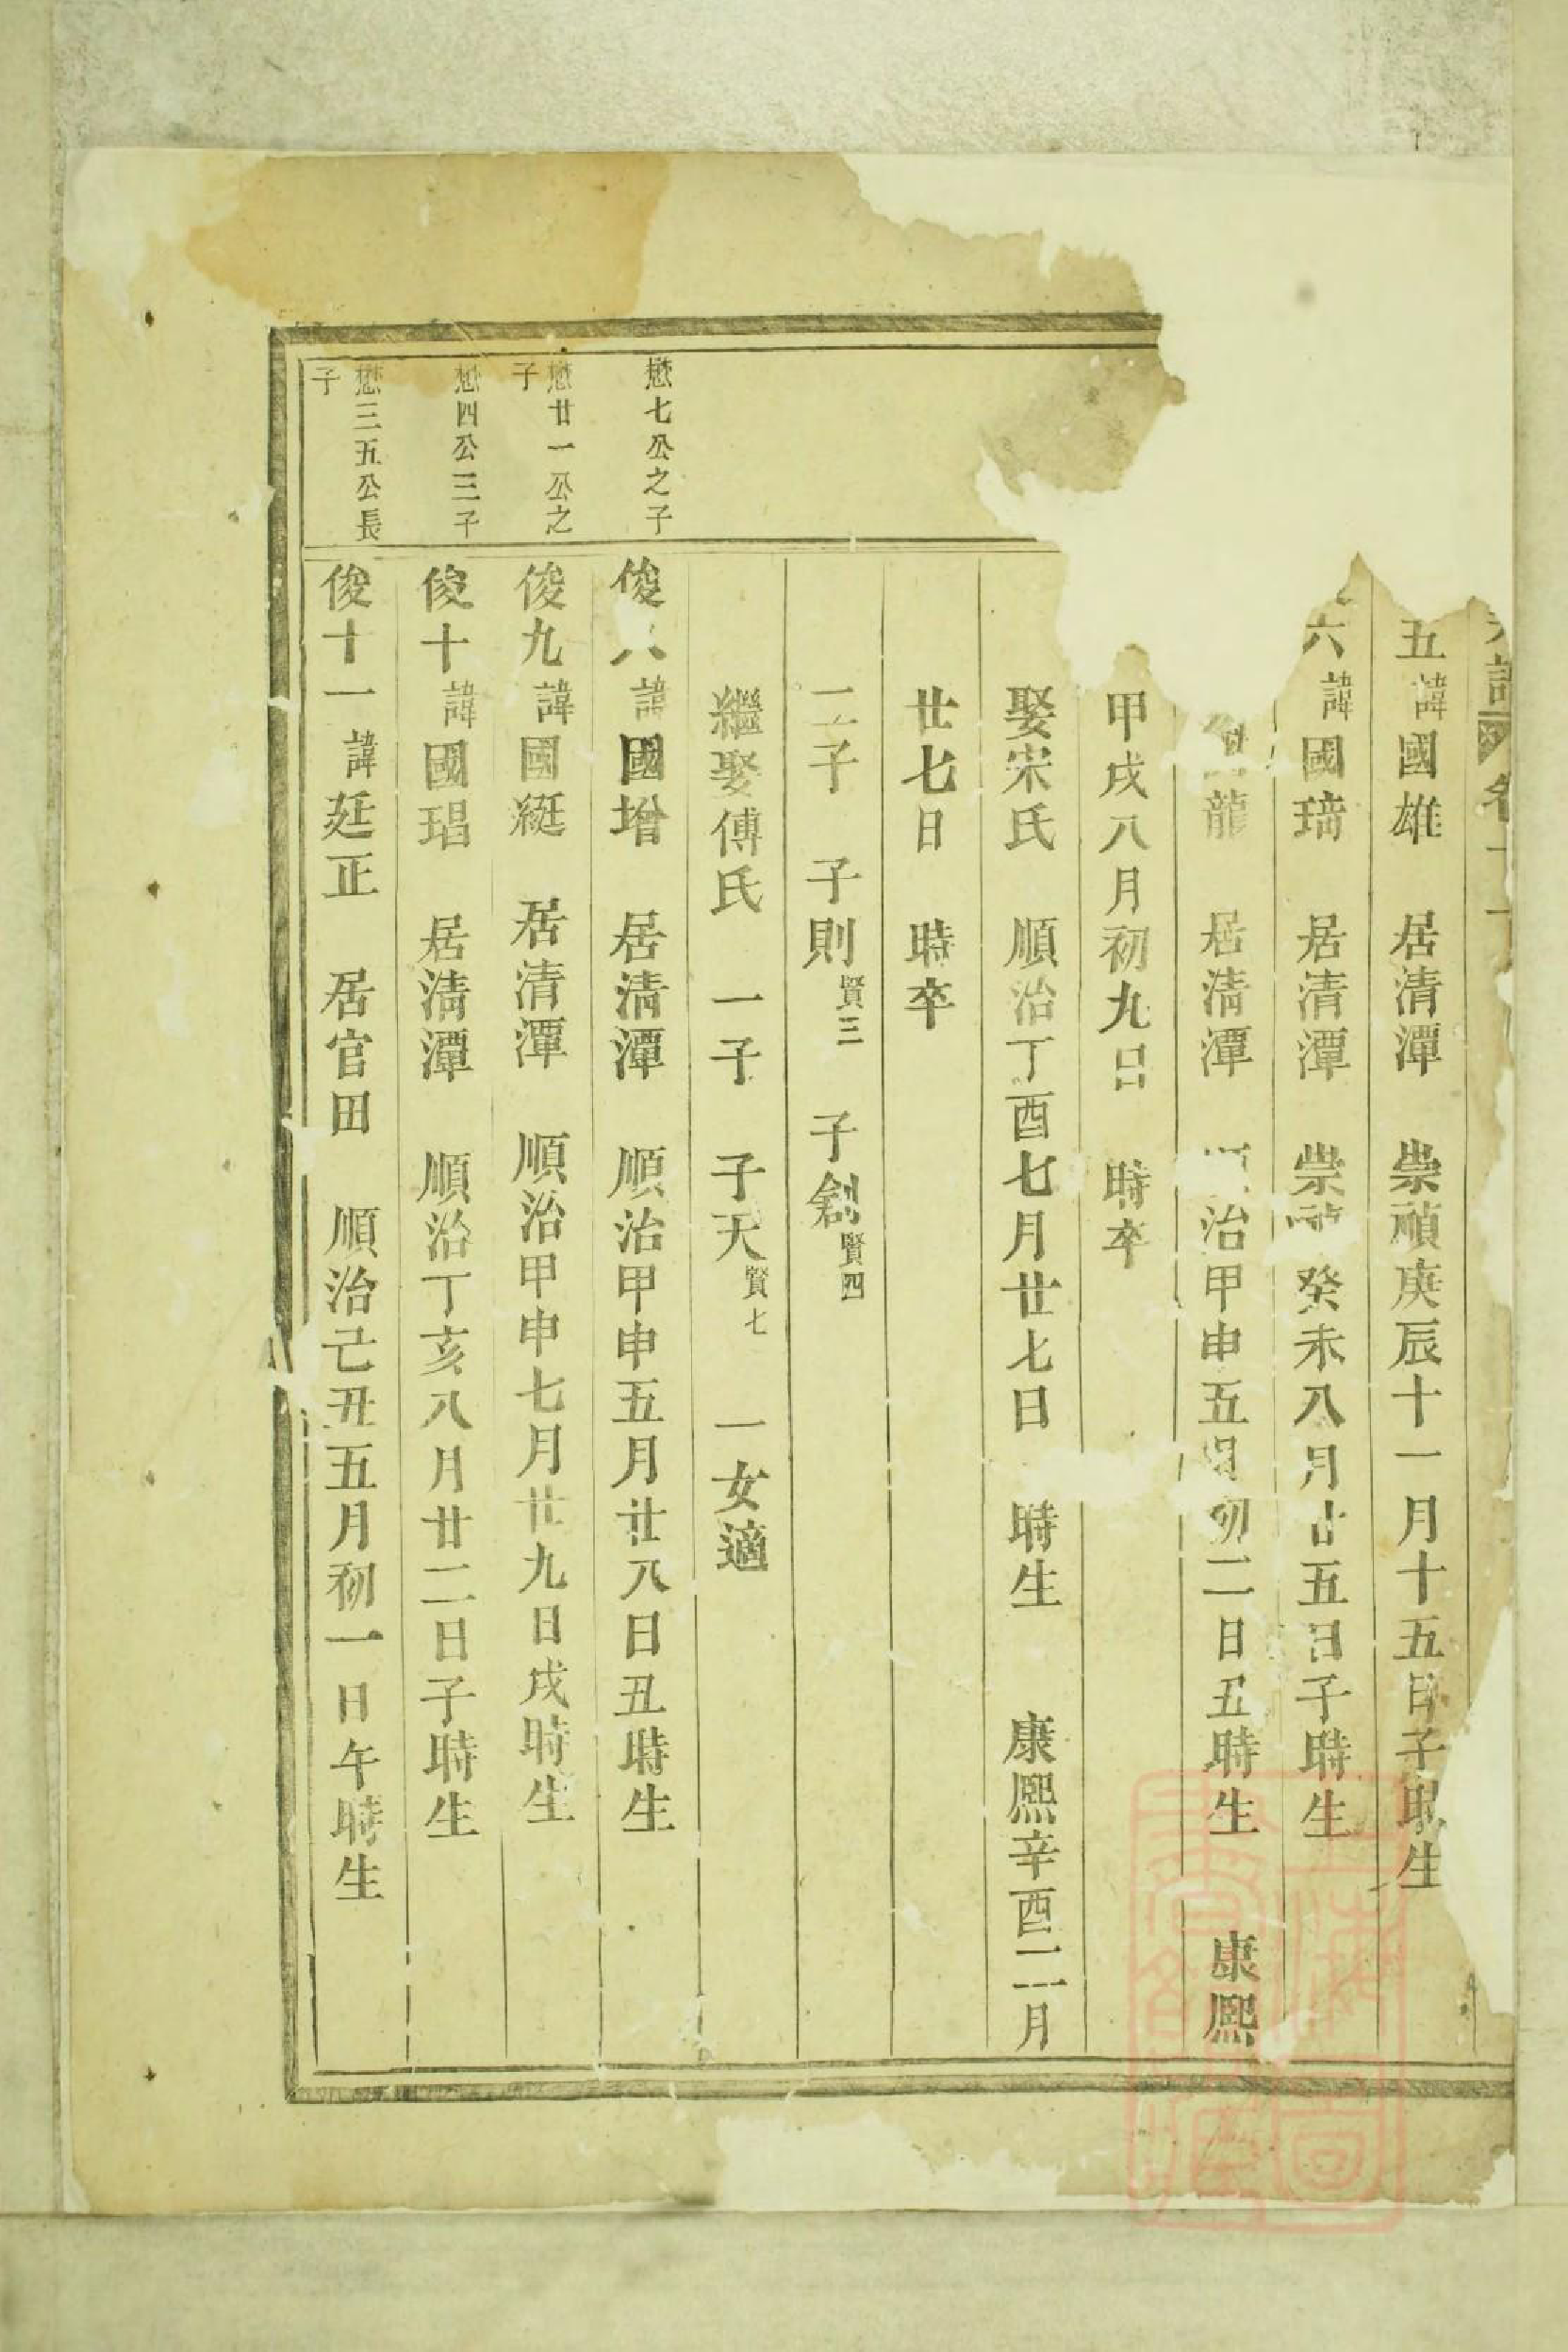 譜 卷十
五諱國雄 居清潭 崇禎庚辰十一月十五日子時生
六諱國琦 居清潭 崇禎癸未八月廿五日子時生
龍 居清潭 順治甲申五月初二日丑時生 康熙
甲戌八月初九日 時卒
娶宋氏 順治丁酉七月廿七日 時生 康熙辛酉二月
廿七日 時卒
二子 子則賢三 子創賢四
繼娶傅氏 一子 子天賢七 一女適
懋七公之子
俊八諱國增 居清潭 順治甲申五月廿八日丑時生
懋廿一公之子
俊九諱國綎 居清潭 順治甲申七月廿九日戌時生
懋四公三子
俊十諱國琩 居清潭 順治丁亥八月廿二日子時生
懋三五公長子
俊十一諱廷正 居官田 順治己丑五月初一日午時生